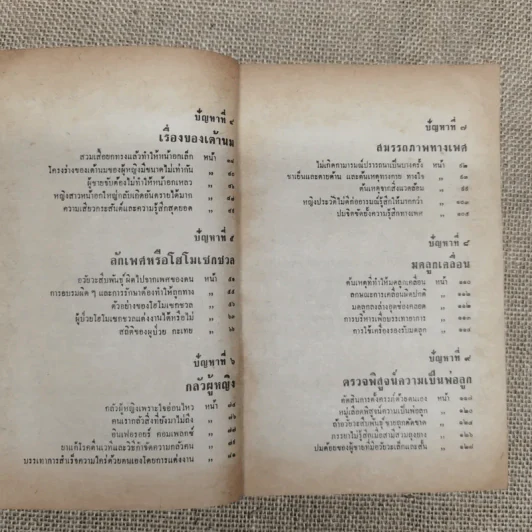 ปัญหาที่ ๔
เรื่องของเต้านม
สวมเสื้อยกทรงแล้วทำให้หน้าอกเล็ก หน้า
โครงร่างของเต้านมของผู้หญิงมีขนาดไม่เท่ากัน „
ผู้ชายขับต้องไม่ทำให้หน้าอกเหลว „
หญิงสาวหน้าอกใหญ่กลับเกิดอันตรายได้มาก „
ความเสียวกระสันต์และความรู้สึกสุดยอด „
ปัญหาที่ ๕
ลักเพศหรือโฮโมเซกชวล
อวัยวะสืบพันธุ์ผิดไปจากเพศของตน หน้า ๕๑
การอบรมผิด ๆ และการรักษาต้องทำให้ถูกทาง „
ตัวอย่างของโฮโมเซกชวล „
ผู้ป่วยโฮโมเซกชวลแต่งงานได้หรือไม่ „
สถิติของผู้ป่วย กะเทย „
ปัญหาที่ ๖
กลัวผู้หญิง
กลัวผู้หญิงเพราะใจอ่อนไหว หน้า
คนเรากลัวสิ่งที่ยังมาไม่ถึง „
อินเฟอรออรี่ คอมเพลกซ์ „
ยาแก้โรคตื่นเวทีและวิธีกำจัดความกลัวคน „
บรรเทาการสำเร็จความใคร่ด้วยตนเองโดยการแต่งงาน „
ปัญหาที่ ๗
สมรรถภาพทางเพศ
ไม่เกิดอามารมณ์ปรารถนาเป็นบางครั้ง หน้า
ชาเย็นและตายด้าน และต้นเหตุทางกาย ทางใจ „
ต้นเหตุจากสิ่งแวดล้อม „
หญิงประวิติไม่ดีก่ออารมณ์รู้สึกให้มากกว่า „
ปมจิตขัดยั้งความรู้สึกทางเพศ „ ๑๐๕
ปัญหาที่ ๘
มดลูกเคลื่อน
ต้นเหตุที่ทำให้มดลูกเคลื่อน หน้า ๑๑๐
ลักษณะการเคลื่อนผิดปกติ „ ๑๑๒
มดลูกลงล่างอุดช่องคลอด „
การบริหารเพื่อบรรเทาอาการ „
การใช้เครื่องรองรับมดลูก „
ปัญหาที่ ๙
ตรวจพิสูจน์ความเป็นพ่อลูก
ตัดสินการตั้งครรภ์ด้วยตนเอง หน้า
หมู่เลือดพิสูจน์ความเป็นพ่อลูก „
ถ้าอวัยวะสืบพันธุ์ชายถูกตัดขาด „
ภรรยาไม่รู้สึกเมื่อสามีสวมถุงยาง „
ปมด้อยของผู้ชายที่มีอวัยวะเล็กและสั้น „ ๑๒๗